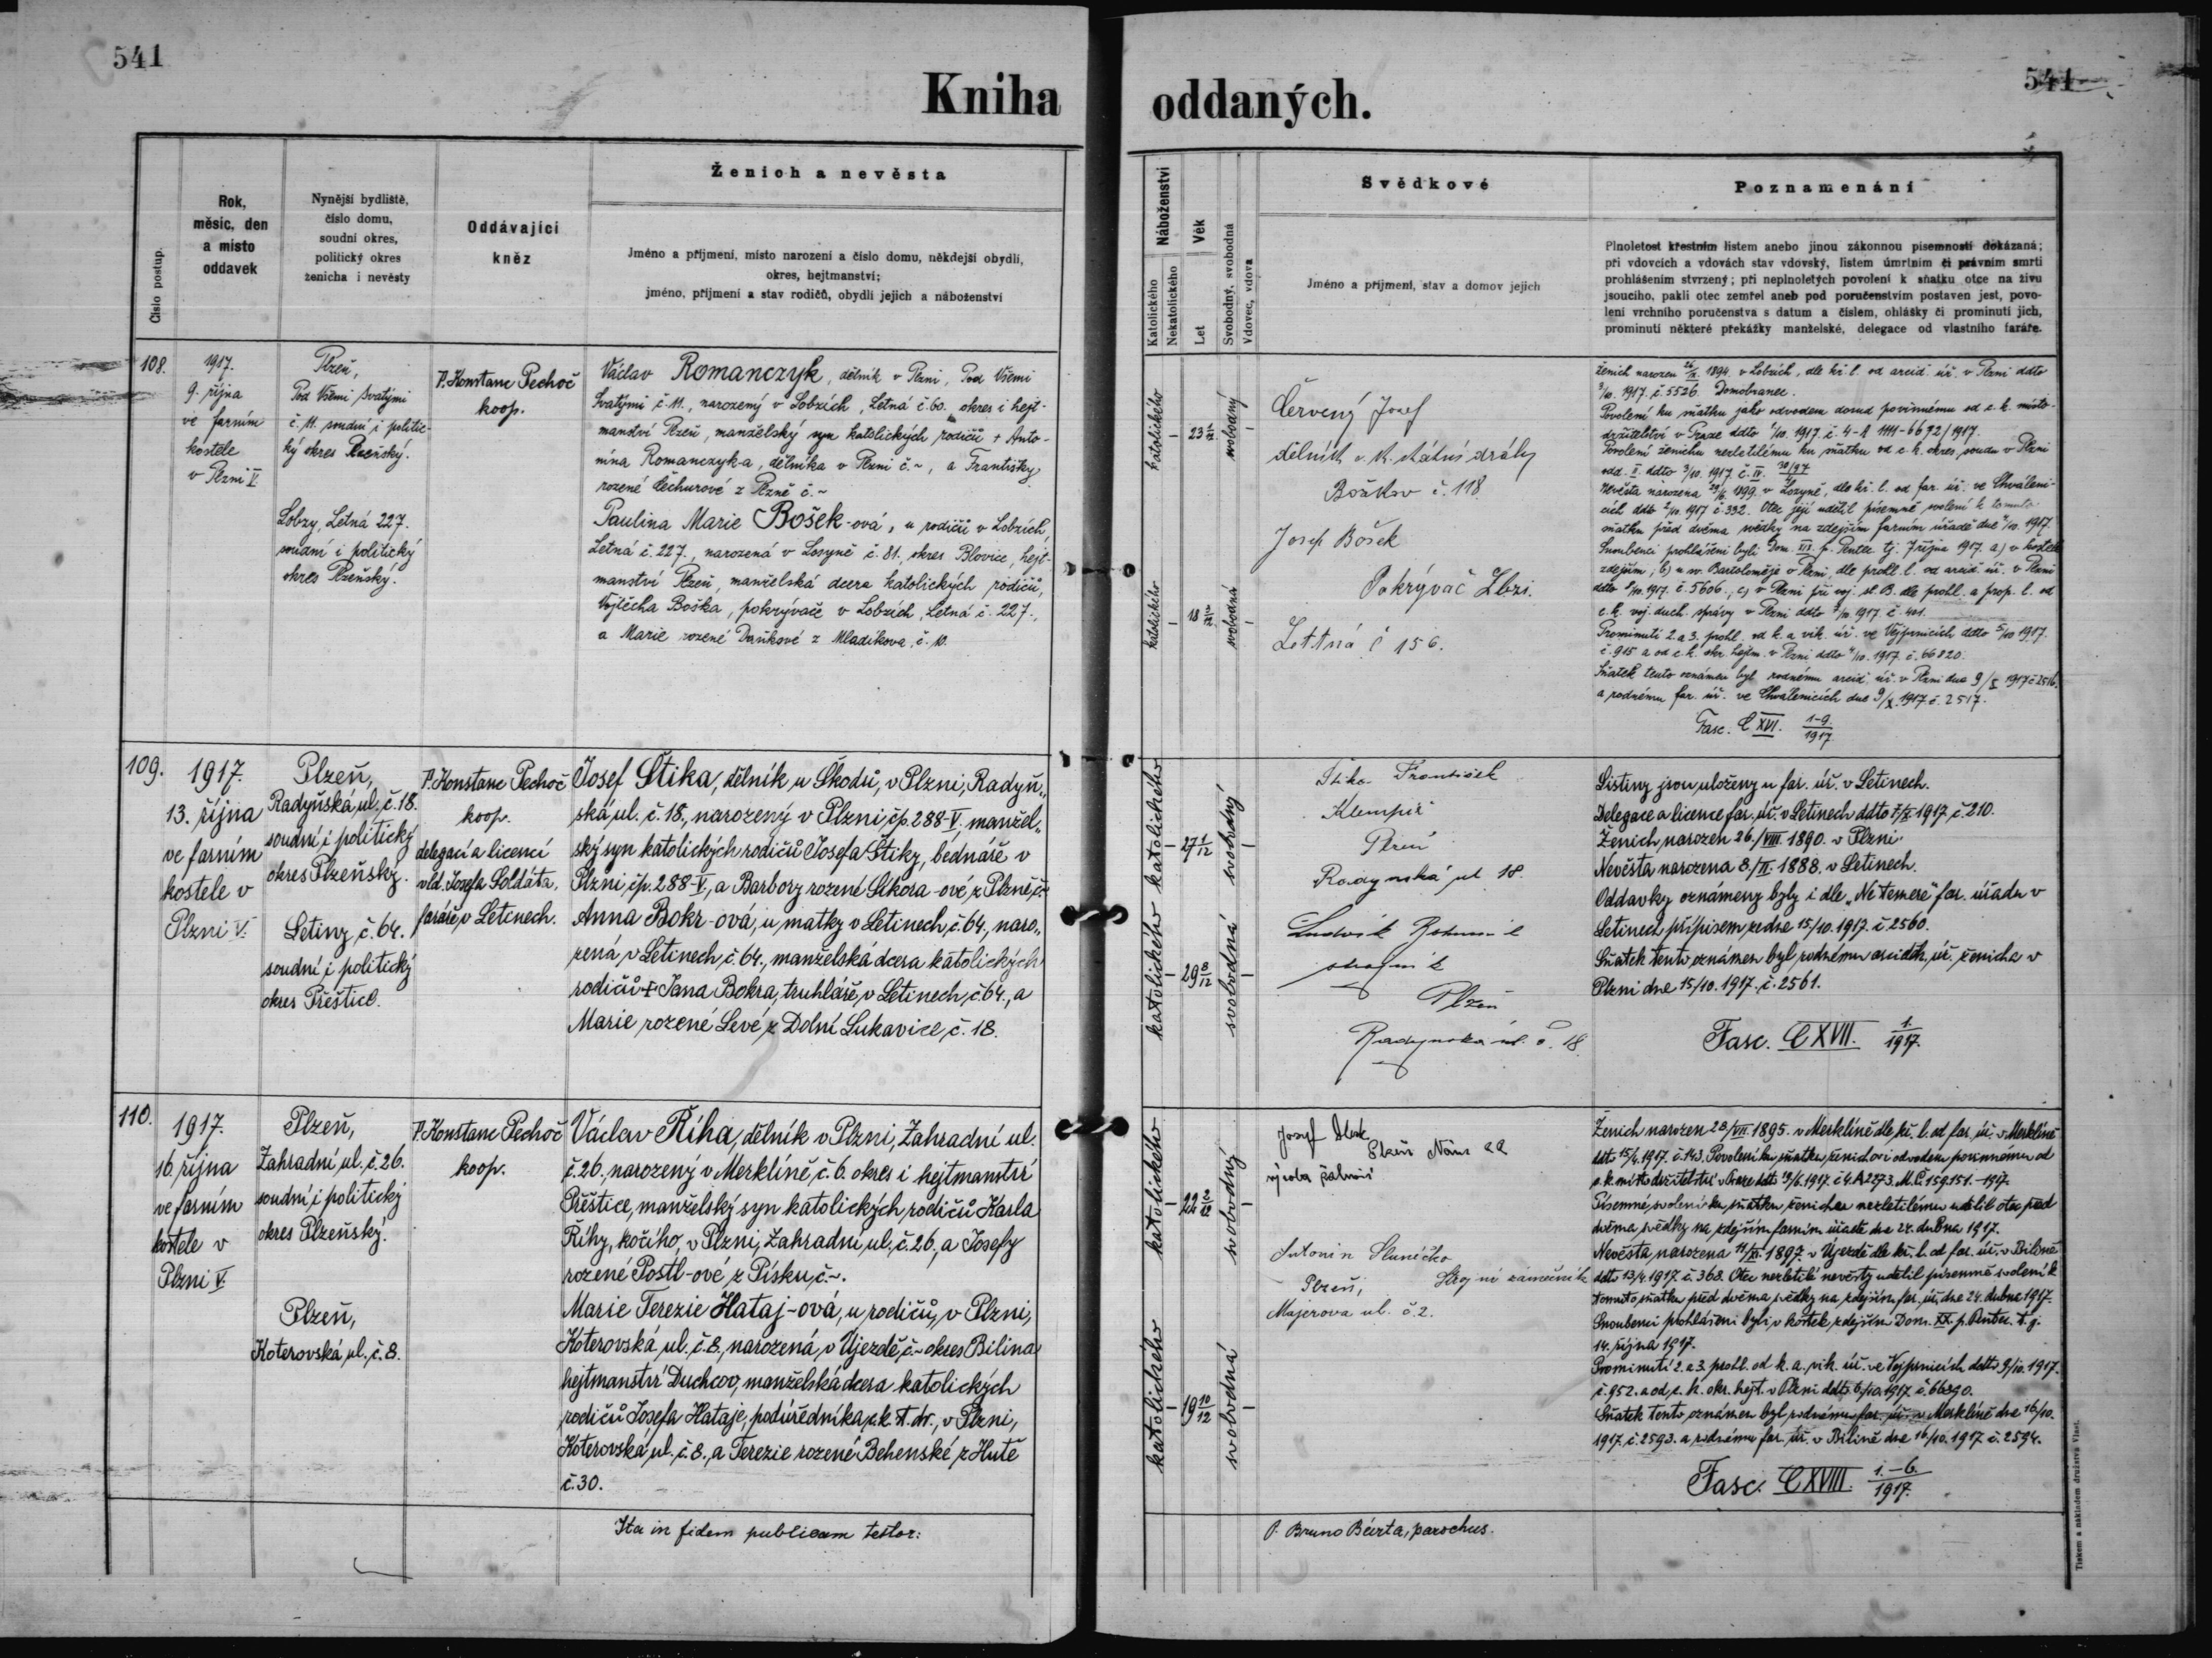 541
541
Kniha oddaných.
Číslo postup.
Rok,
měsíc, den
a místo
oddavek
Nynější bydliště,
číslo domu,
soudní okres,
politický okres
ženicha i nevěsty
Oddávající
kněz
Ženich a nevěsta
Jméno a příjmení, místo narození a číslo domu, někdejší obydlí,
okres, hejtmanství;
jméno, příjmení a stav rodičů, obydlí jejich a náboženství
Náboženství
Katolického
Nekatolického
Věk
Let
Svobodný, svobodná
Vdovec, vdova
Svědkové
Jméno a příjmení, stav a domov jejich
Poznamenání
Plnoletost křestním listem anebo jinou zákonnou písemností dokázaná;
při vdovcích a vdovách stav vdovský, listem úmrtním či právním smrti
prohlášením stvrzený; při neplnoletých povolení k sňatku otce na živu
jsoucího, pakli otec zemřel aneb pod poručenstvím postaven jest, povo-
lení vrchního poručenstva s datum a číslem, ohlášky či prominutí jich,
prominutí některé překážky manželské, delegace od vlastního faráře.
108.
1917.
9. října
ve farním
kostele
v Plzni V.
Plzeň,
Pod Všemi svatými
č. 11. soudní i politic-
ký okres Plzeňský.
Lobzy, Letná 227.
soudní i politický
okres Plzeňský.
P. Konstanc Pechoč
koop.
Václav Romanczyk, dělník v Plzni, Pod Všemi
Svatými č. 11., narozený v Lobzích, Letná č. 60. okres i hejt-
manství Plzeň, manželský syn katolických rodičů + Anto-
nína Romanczyk-a, dělníka v Plzni č. ~, a Františky
rozené Čechurové z Plzně č. ~
Paulina Marie Bošek-ová, u rodičů v Lobzích,
Letná č. 227., narozená v Losyně č. 81., okres Blovice, hejt-
manství Plzeň, manželská dcera katolických rodičů,
Vojtěcha Boška, pokrývače v Lobzích, Letná č. 227.,
a Marie rozené Daňkové z Mladíkova, č. 10.
katolického
23 1/12
svobodný
katolického
18 3/12
svobodná
Červený Josef
dělník c. k. státní dráhy
Božkov č. 118.
Josef Bošek
Pokrývač Lbzi.
Lettná č 156.
Ženich narozen 1894. v Lobzích, dle kř. l. od arcid. úř. v Plzni ddto
3/10. 1917. č. 5526. Domobranec.
Povolení ku sňatku jako odvodem dosud povinnému od c. k. místo-
držitelství v Praze ddto 1/10. 1917. č. 4-A 1111-6672/1917.
Povolení ženichu nezletilému ku sňatku od c. k. okres. soudu v Plzni
odd. II. ddto 3/10. 1917. č. IV.
Nevěsta narozena 1899. v Lozyně, dle kř. l. od far. úř. ve Chváleni-
cích ddto 2/10. 1917 č. 392. Otec její udělil písemné svolení k tomuto
sňatku před dvěma svědky na zdejším farním úřadě dne 4/10. 1917.
Snoubenci prohlášeni byli Dom. p. Pentec. tj. 7 října 1917. a) v kostele
zdejším; b) u sv. Bartoloměje v Plzni, dle prohl. l. od arcid. úř. v Plzni
ddto 8/10. 1917. č. 5606.; c) v Plzni při voj. st. B. dle prohl. a prop. l. od
c. k. voj. duch. správy v Plzni ddto 1917. č. 401.
Prominutí 2. a 3. prohl. od k. a. vik. úř. ve Vejprnicích ddto 5/10 1917.
č. 915 a od c. k. okr. hejtm. v Plzni ddto 4/10. 1917. č. 66820.
Sňatek tento oznámen byl rodnému arcid. úř. v Plzni dne 9/X 1917 č. 2516.
a rodnému far. úř. ve Chválenicích dne 9/X. 1917 č. 2517.
Fasc. CXVI. 1-9/1917
109.
1917.
13. října
ve farním
kostele v
Plzni V.
Plzeň,
Radyňská ul. č. 18.
soudní i politický
okres Plzeňský.
Letiny č. 64.
soudní i politický
okres Přeštice.
P. Konstanc Pechoč
koop.
delegací a licencí
vld. Josefa Soldáta,
faráře v Letinech.
Josef Štika, dělník u Škodů, v Plzni, Radyň„
ská ul. č. 18., narozený v Plzni, čp. 288-V. manžel„
ský syn katolických rodičů Josefa Štiky, bednáře v
Plzni čp. 288-V., a Barbory rozené Sikora-ové z Plzně, č. ~
Anna Bokr-ová, u matky v Letinech, č. 64., naro„
zená v Letinech, č. 64., manželská dcera katolických
rodičů + Jana Bokra, truhláře, v Letinech, č. 64., a
Marie rozené Levé z Dolní Lukavice, č. 18.
katolického
27 1/12
svobodný
katolického
29 8/12
svobodná
Štika František
Klempíř
Plzeň
Radynská ul 18.
Ludvík
Plzeň
Radynská ul. č. 18.
Listiny jsou uloženy u far. úř. v Letinech.
Delegace a licence far. úř. v Letinech ddto 7/X 1917 č. 210.
Ženich narozen 26./VIII. 1890. v Plzni.
Nevěsta narozena 8./II. 1888. v Letinech.
Oddavky oznámeny byly i dle „Ne temere“ far. úřadu v
Letinech přípisem ze dne 15/10. 1917. č. 2560.
Sňatek tento oznámen byl rodnému arciděk. úř. ženicha v
Plzni dne 15/10. 1917. č. 2561.
Fasc. CXVII. 1./1917.
110.
1917.
16. října
ve farním
kostele v
Plzni V.
Plzeň,
Zahradní ul. č. 26.
soudní i politický
okres Plzeňský.
Plzeň,
Koterovská ul. č. 8.
P. Konstanc Pechoč
koop.
Václav Říha, dělník v Plzni, Zahradní ul.
č. 26., narozený v Merklíně, č. 6. okres i hejtmanství
Přeštice, manželský syn katolických rodičů Karla
Říhy, kočího, v Plzni, Zahradní ul. č. 26., a Josefy
rozené Postl-ové z Písku, č. ~.
Marie Terezie Hataj-ová, u rodičů, v Plzni,
Koterovská ul. č. 8., narozená v Újezdě, č. ~ okres Bílina
hejtmanství Duchcov, manželská dcera katolických
rodičů Josefa Hataje, podúředníka c. k. st. dr., v Plzni,
Koterovská ul. č. 8., a Terezie rozené Behenské z Hutě
č. 30.
katolického
22 2/12
svobodný
katolického
19 10/12
svobodná
Josef
Plzeň
Antonín Sluníčko
Strojní zámečník
Plzeň,
Majerova ul. č. 2.
Ženich narozen 28/VII. 1895. v Merklíně dle kř. l. od far. úř. v Merklíně
ddto 15/4. 1917. č. 143. Povolení ku sňatku ženichovi odvodem povinnému od
c. k. místodržitelství v Praze ddto 1917. č. 4. A 2273. M. Č. 159151.-1917.
Písemné svolení ku sňatku ženichu nezletilému udělil otec před
dvěma svědky na zdejším farním úřadě dne 24. dubna 1917.
Nevěsta narozena 11/XI. 1897. v Újezdě dle kř. l. od far. úř. v Bílině
ddto 13/4. 1917. č. 368. Otec nezletilé nevěsty udělil písemně svolení k
tomuto sňatku před dvěma svědky na zdejším far. úř. dne 24. dubna 1917.
Snoubenci prohlášeni byli v kostele zdejším Dom. XX. p. Pentec. t. j.
14. října 1917.
Prominutí 2. a 3. prohl. od k. a. vik. úř. ve Vejprnicích ddto 9/10. 1917.
č. 952. a od c. k. okr. hejt. v Plzni ddto 6/10. 1917. č. 66890.
Sňatek tento oznámen byl rodnému far. úř. v Merklíně dne 16/10.
1917. č. 2593. a rodnému far. úř. v Bílině dne 16/10. 1917 č. 2594.
Fasc. CXVIII. 1.-6./1917.
Ita in fidem publicam testor:
P. Bruno Bárta, parochus.
Tiskem a nákladem družstva Vlast.